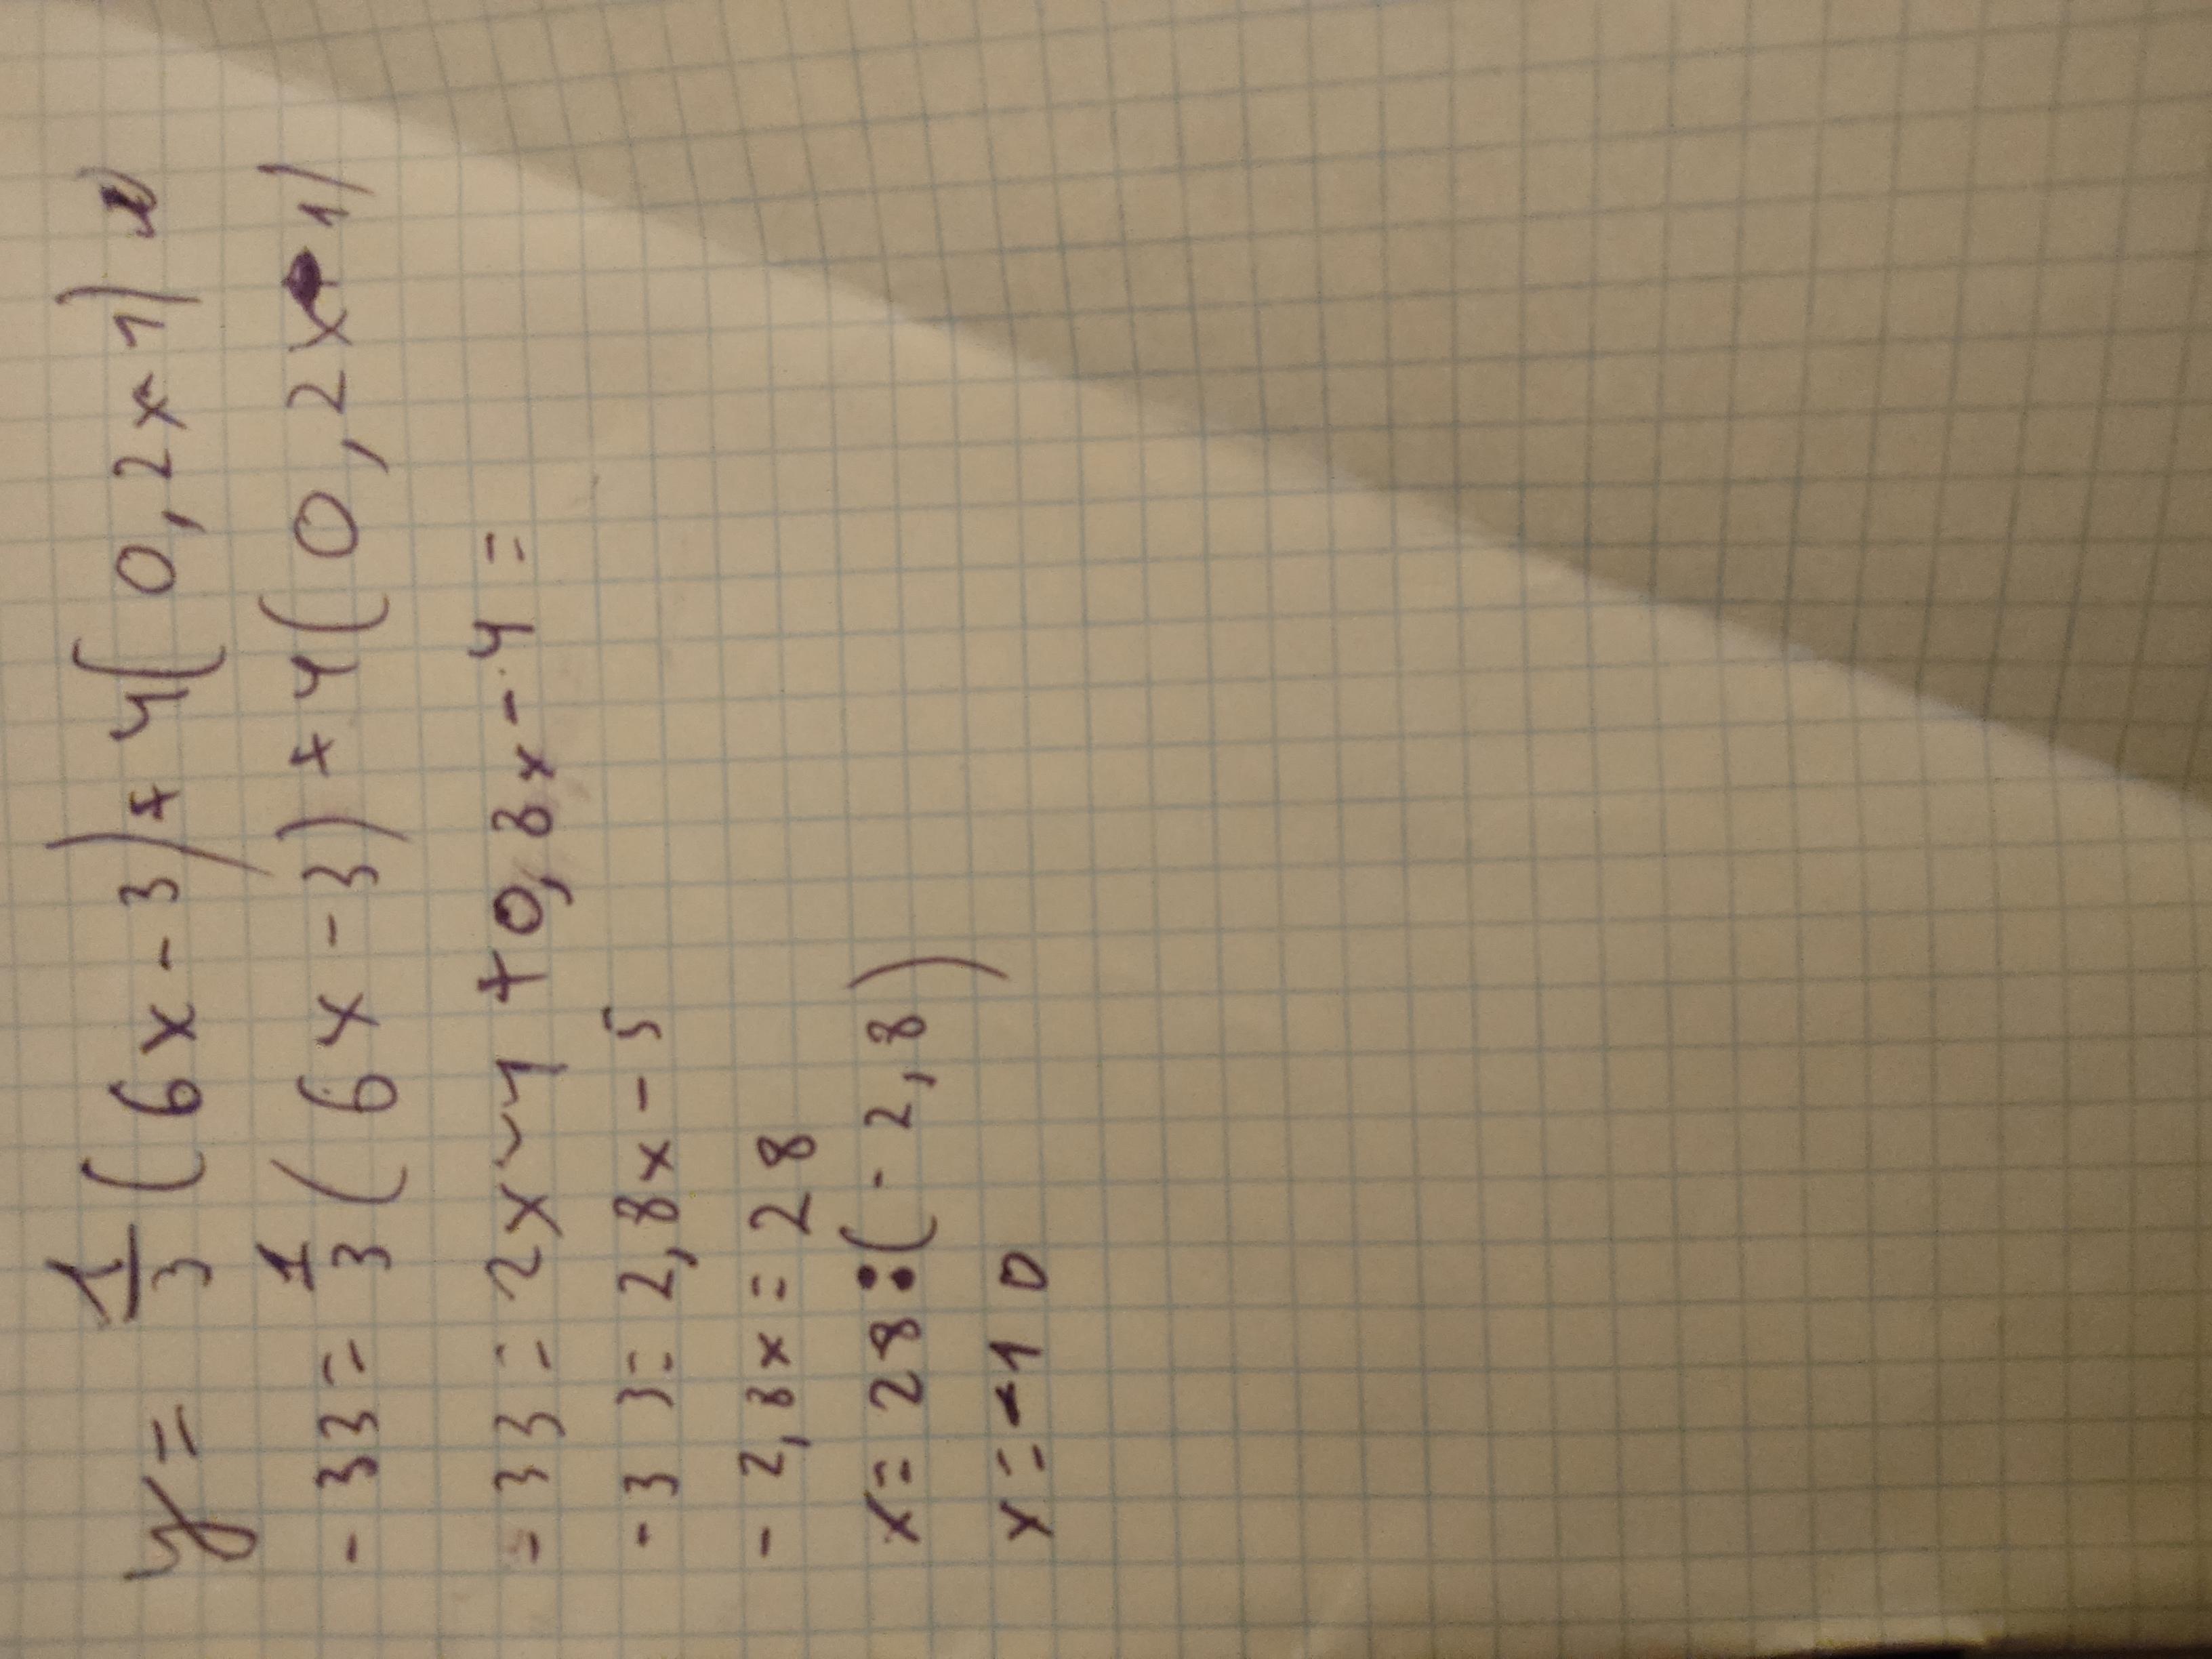 y = 1/3 (6x - 3) + 4(0,2x 1)
- 33 = 1/3 (6x - 3) + 4(0,2x - 1)
- 33 = 2x - 1 + 0,8x - 4 =
- 33 = 2,8x - 5
- 2,8x = 28
x = 28 : (- 2,8)
x = -10